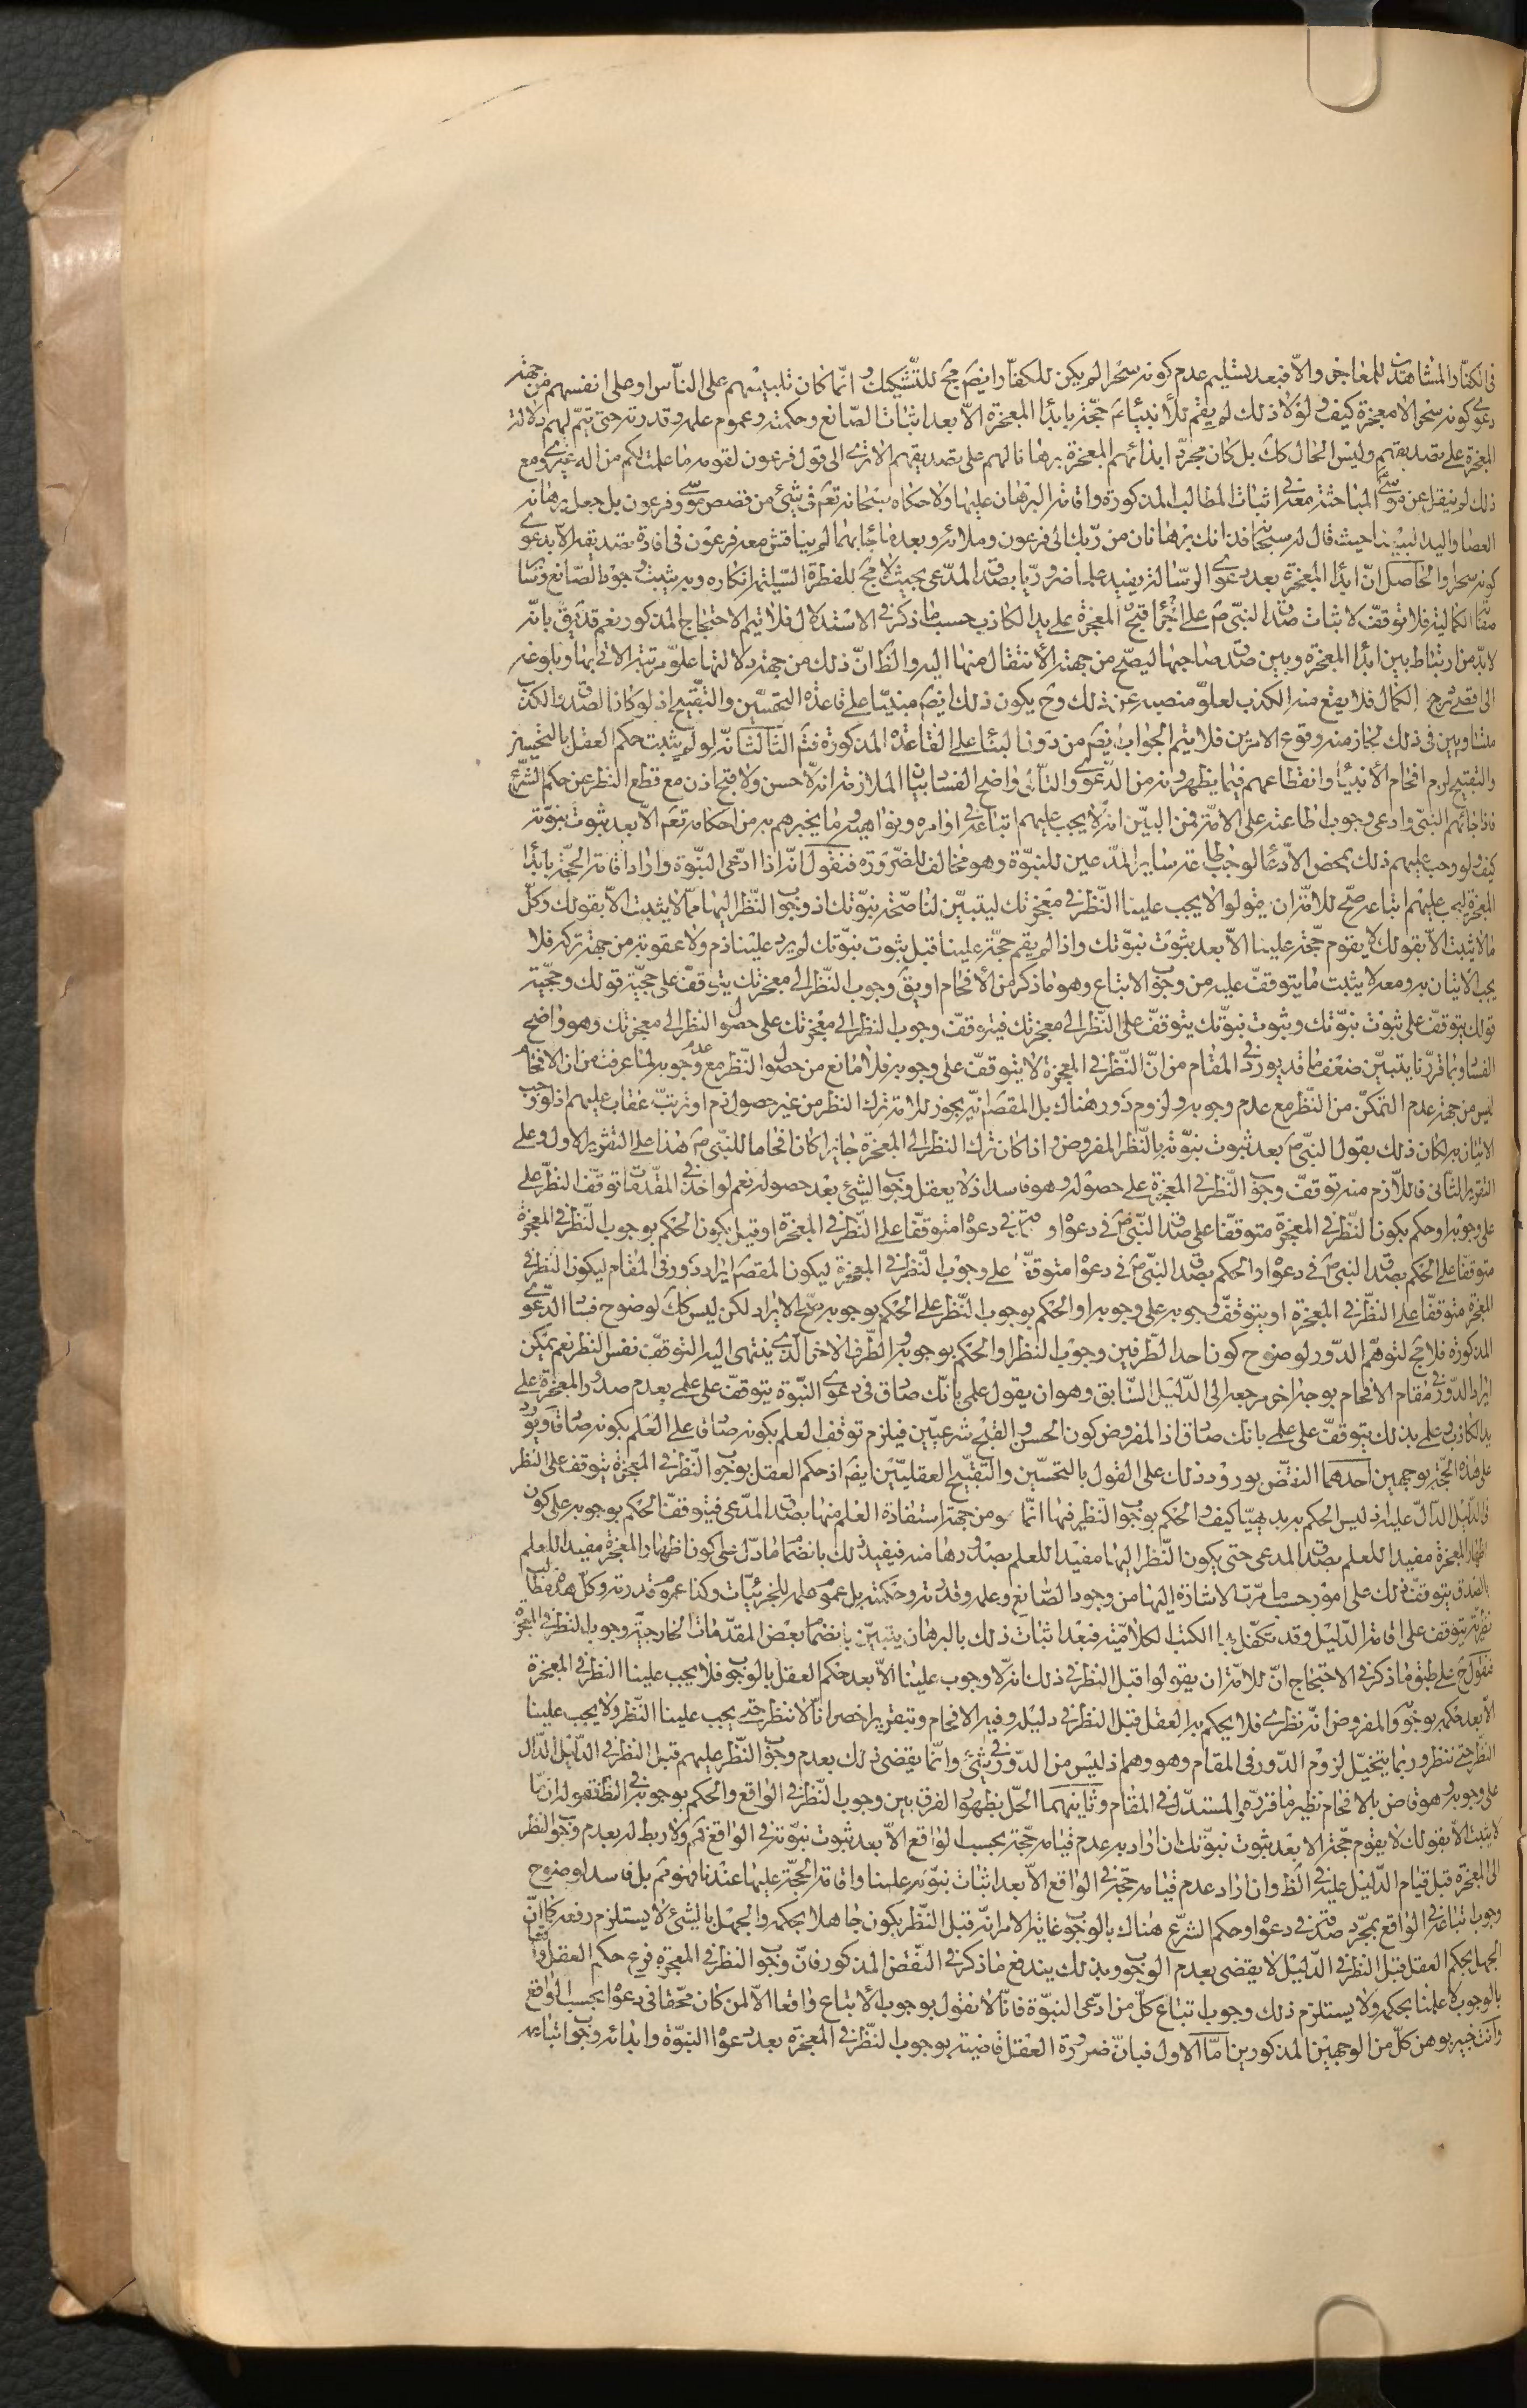 في الكفار المشاهدين للمعاجز والا فبعد تسليم عدم كونه سحرا لم يكن للكفار ايضا مج للتشكيك و انما كان تلبيسهم على الناس او على انفسهم من جهة
دعوى كونه سحرا لا معجزة كيف ولولا ذلك لم يقم للانبياء ع حجة بابداء المعجزة الا بعد اثبات الصانع وحكمته وعموم علمه وقدرته حتى يتم لهم دلالة
المعجزة على تصديقهم وليس الحال كك بل كان مجرد ابدائهم المعجزة برهانا لهم على تصديقهم الا ترى الى قول فرعون لقومه ما علمت لكم من اله غيرى ومع
ذلك لم ينقل عن موسى المباحثة معه في اثبات المطالب المذكورة واقامة البرهان عليها ولا حكاه سبحانه تعالى في شيئ من قصص موسى وفرعون بل جعل برهانه
العصا واليد البيضا حيث قال له سبحانه فذانك برهانان من ربك الى فرعون وملائه وبعد ما اجابهما لم يناقش معه فرعون في افادة تصديقه الا بدعوى
كونه سحرا والحاصل ان ابداء المعجزة بعد دعوى الرسالة يفيد علما ضروريا بصدق المدعى بحيث لا مج للفطرة السليمة انكاره وبه يثبت وجود الصانع وسا
صفاته الكمالية فلا توقف لاثبات صدق النبي ص على قبح اجراء المعجزة على يد الكاذب حسبما ذكر في الاستدلال فلا تيم الاحتجاج المذكور نعم قد يق بانه
لا بد من ارتباط بين ابداء المعجزة وبين صدق صاحبها ليصح من جهته الانتقال منها اليه والظ ان ذلك من جهة دلالتها علو مرتبة الاتى بها وبلوغه
الى اقصى درجة الكمال فلا يقع منه الكذب لعلو منصبه عن ذلك وح يكون ذلك ايضا مبنيا على قاعدة التحسين والتقبيح اذ لو كان الصدق والكذب
متساويين في ذلك لجاز منه وقوع الامرين فلا يتم الجواب ايضا من دون البناء على القاعدة المذكورة فتم الثالث انه لو لم يثبت حكم العقل بالتحسين
والتقبيح لزم افحام الانبياء وانقطاعهم فيما يظهرونه من الدعوى والتالى واضح الفساد بيان الملازمة انه لا حسن ولا قبح اذن مع قطع النظر عن حكم الشرع
فاذا جائهم النبي وادعى وجوب اطاعته على الامة فمن البين انه لا يجب عليهم اتباعه في اوامره ونواهيه وما يخبرهم به من احكامه تعالى الا بعد ثبوت نبوته
كيف ولو وجب عليهم ذلك بمحض الادعاء لوجب اطاعة ساير المدعين للنبوة وهو مخالف للضرورة فنقول انه اذا ادعى النبوة واراد اقامة الحجة بابداء
المعجزة ليجب عليهم اتباعه صح للامة ان يقولوا لا يجب علينا النظر في معجزتك ليتبين لنا صحة نبوتك اذ وجوب النظر اليها مما لا يثبت الا بقولك وكل
ما لا يثبت الا بقولك لا يقوم حجة علينا الا بعد ثبوت نبوتك واذا لم يقم حجة علينا قبل ثبوت نبوتك لم يرد علينا ذم ولا عقوبة من جهة تركه فلا
يجب الاتيان به ومعه لا يثبت ما يتوقف عليه من وجوب الاتباع وهو ما ذكر من الافحام او يق وجوب النظر الى معجزتك يتوقف على حجية قولك وحجية
قولك يتوقف على ثبوت نبوتك وثبوت نبوتك يتوقف على النظر الى معجزتك فيتوقف وجوب النظر الى معجزتك على حصول النظر الى معجزتك وهو واضح
الفساد وبما قررنا يتبين ضعف ما قد يورد في المقام من ان النظر في المعجزة لا يتوقف على وجوبه فلا مانع من حصول النظر مع عدم وجوبه لما عرفت من ان الافحام
ليس من جهة عدم التمكن من النظر مع عدم وجوبه ولزوم دور هناك بل المقصود انه يجوز للامة ترك النظر من غير حصول ذم او ترتب عقاب عليهم اذ لو وجب
الاتيان به لكان ذلك بقول النبي ص بعد ثبوت نبوته بالنظر المفروض واذا كان ترك النظر الى المعجزة جايزا كان افحاما للنبي ص هذا على التقرير الاول وعلى
التقرير الثانى فاللازم منه توقف وجوب النظر في المعجزة على حصوله وهو فاسد اذ لا يعقل وجوب الشيئ بعد حصوله نعم لو اخذ في المقدمات توقف النظر على
على وجوبه او حكم بكون النظر في المعجزة متوقفا على صدق النبي ص في دعواه وصدقه في دعواه متوقفا على النظر في المعجزة او قيل بكون الحكم بوجوب النظر في المعجزة
متوقفا على الحكم بصدق النبي ص في دعواه والحكم بصدق النبي ص في دعواه متوقفا على وجوب النظر في المعجزة ليكون المقصود ايراد دور في المقام ليكون النظر في
المعجزة متوقفا على النظر في المعجزة او يتوقف وجوبه على وجوبه او الحكم بوجوب النظر على الحكم بوجوبه صح الايراد لكن ليس كك لوضوح فساد الدعوى
المذكورة فلا مج لتوهم الدور لوضوح كون احد الطرفين وجوب النظر او الحكم بوجوبه والطرف الاخر الذى ينتهى اليه التوقف نفس النظر نعم يمكن
ايراد الدور في مقام الافحام بوجه اخر مرجعه الى الدليل السابق وهو ان يقول علمى بانك صادق في دعوى النبوة يتوقف على علمى بعدم صدور المعجزة على
يد الكاذب وعلمى بذلك يتوقف على علمى بانك صادق اذ المفروض كون الحسن والقبح شرعيين فيلزم توقف العلم بكونه صادقا على العلم بكونه صادقا ويورد
على هذه الحجة بوجهين احدهما النقض بورود ذلك على القول بالتحسين والتقبيح العقليين ايضا اذ حكم العقل بوجوب النظر في المعجزة يتوقف على النظر
في الدليل الدال عليه اذ ليس الحكم به بديهيا كيف والحكم بوجوب النظر فيها انما هو من جهة استفادة العلم منها بصدق المدعى فيتوقف الحكم بوجوبه على كون
اظهار المعجزة مفيدا للعلم بصدق المدعى حتى يكون النظر اليها مفيدا للعلم بصدورها منه فيفيد ذلك بانضمام ما دل على كون اظهار المعجزة مفيدا للعلم
بالصدق يتوقف ذلك على امور حسبما مرت الاشارة اليها من وجود الصانع وعلمه وقدرته وحكمته بل عموم علمه للجزئيات وكذا عموم قدرته وكل هذه مطالب
نظرية يتوقف على اقامة الدليل وقد تكفل بها الكتب الكلامية فبعد اثبات ذلك بالبرهان يتبين بانضمام بعض المقدمات الخارجية وجوب النظر في المعجزة
فنقول ح على طبق ما ذكر في الاحتجاج ان للامة ان يقولوا قبل النظر في ذلك انه لا وجوب علينا الا بعد حكم العقل بالوجوب فلا يجب علينا النظر في المعجزة
الا بعد حكمه بوجوبه والمفروض انه نظرى فلا يحكم به العقل قبل النظر في دليله وفيه الافحام وبتقرير اخصر انا لا ننظر حتى يجب علينا النظر ولا يجب علينا
النظر حتى ننظر وربما يتخيل لزوم الدور في المقام وهو وهم اذ ليس من الدور في شيئ وانما يقضى ذلك بعدم وجوب النظر عليهم قبل النظر في الدليل الدال
على وجوبه وهو قاض بالافحام نظير ما قرره المستدل في المقام وثانيهما الحل بظهور الفرق بين وجوب النظر في الواقع والحكم بوجوبه في الظ فقوله ان ما
لا يثبت الا بقولك لا يقوم حجة الا بعد ثبوت نبوتك ان اراد به عدم قيامه حجة بحسب الواقع الا بعد ثبوت نبوته في الواقع فم ولا ربط له بعدم وجوب النظر
الى المعجزة قبل قيام الدليل عليه في الظ وان اراد عدم قيامه حجة في الواقع الا بعد اثبات نبوته علينا واقامة الحجة عليها عندنا فهو مم بل فاسد لوضوح
وجوب اتباعه في الواقع بمجرد صدقه في دعواه وحكم الشرع هناك بالوجوب غاية الامر انه قبل النظر يكون جاهلا بحكمه والجهل بالشيئ لا يستلزم رفعه كما ان
الجهل بحكم العقل قبل النظر في الدليل لا يقضى بعدم الوجوب وبذلك يندفع ما ذكر في النقض المذكور فان وجوب النظر في المعجزة فرع حكم العقل واقعا
بالوجوب لا علمنا بحكمه ولا يستلزم ذلك وجوب اتباع كل من ادعى النبوة فانا لا نقول بوجوب الاتباع واقعا الا لمن كان محقا في دعواه بحسب الواقع
وانت خبير بوهن كل من الوجهين المذكورين اما الاول فبان ضرورة العقل قاضية بوجوب النظر في المعجزة بعد دعواه النبوة وابدائه وجوب اتباعه